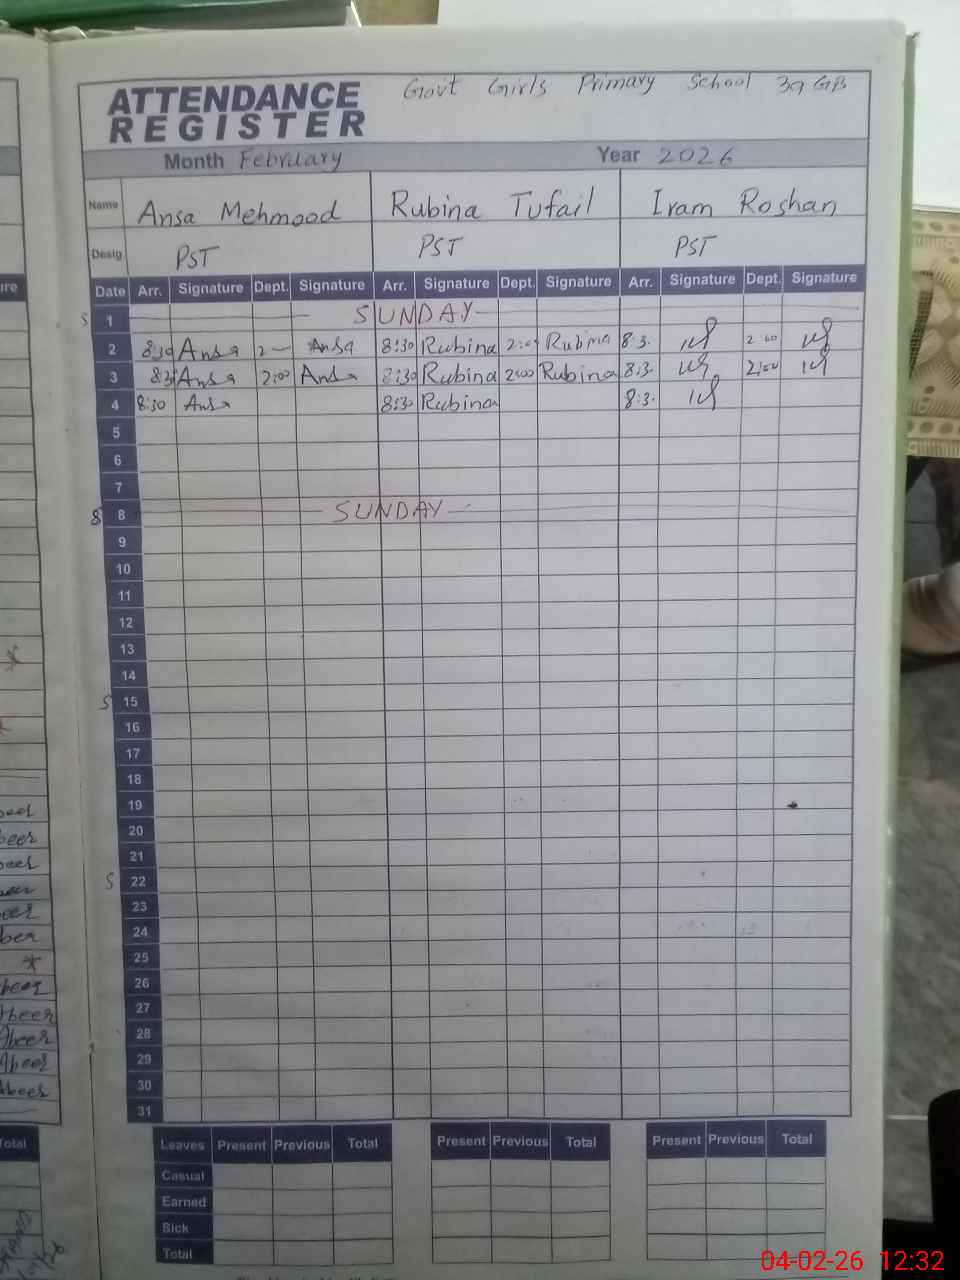 Govt Girls Primary School 39 GB
ATTENDANCE
REGISTER
Month February Year 2026
Name Ansa Mehmood Rubina Tufail Iram Roshan
Desig PST PST PST
Date Arr. Signature Dept. Signature Arr. Signature Dept. Signature Arr. Signature Dept. Signature
S 1 SUNDAY
2 8:30 Ansa 2 Ansa 8:30 Rubina 2:00 Rubina 8:3. 2:00
3 8:3 Ansa 2:00 Ansa 8:30 Rubina 2:00 Rubina 8:3. 2:00
4 8:30 Ansa 8:30 Rubina 8:3.
5
6
7
S 8 SUNDAY
9
10
11
12
13
14
S 15
16
17
18
19
20
21
S 22
23
24
25
26
27
28
29
30
31
Leaves Present Previous Total Present Previous Total Present Previous Total
Casual
Earned
Sick
Total
04-02-26 12:32